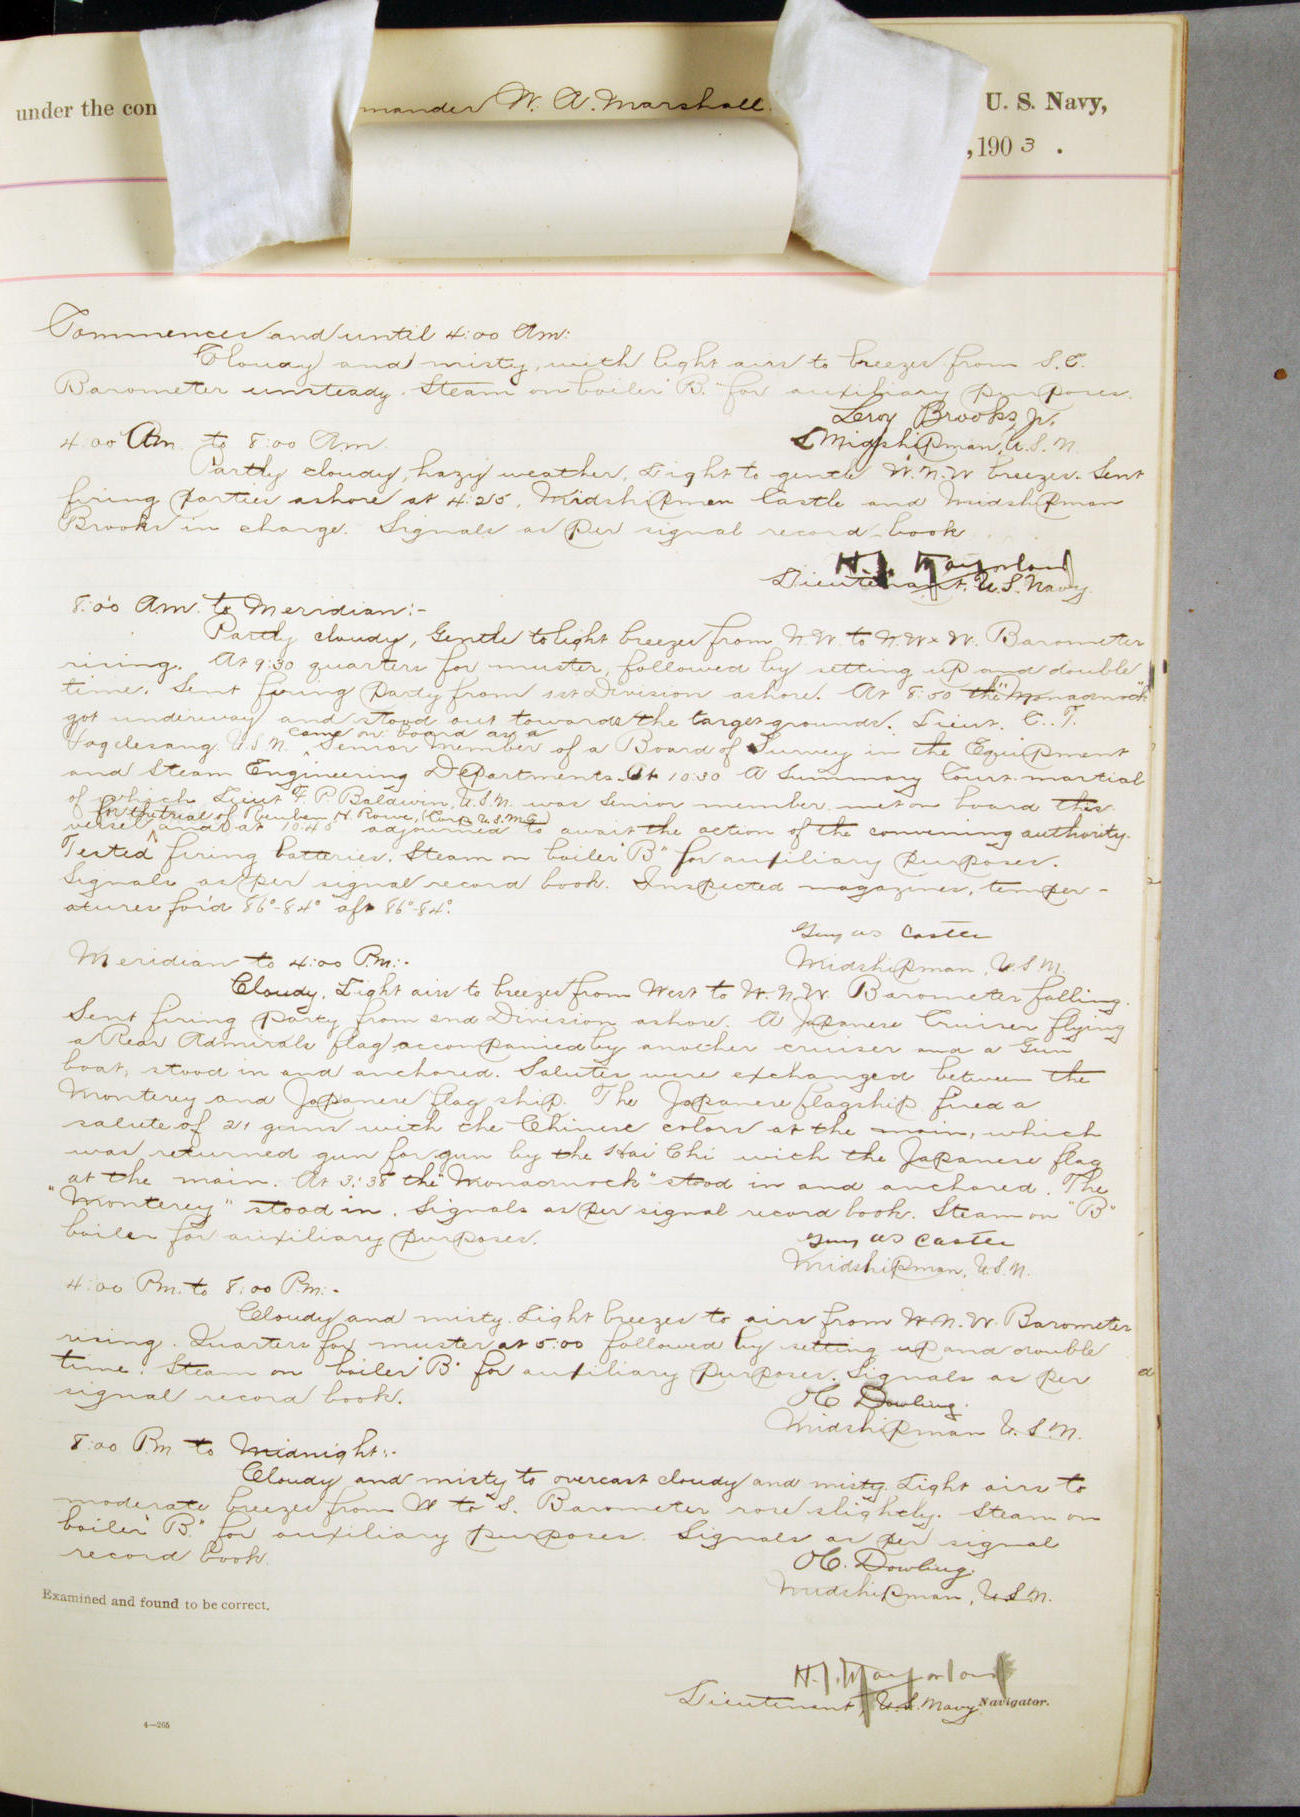 under the com mander W. A. Marshall U. S. Navy,
, 1903 .
Commences and until 4:00 Am:
Cloudy and misty, with light airs to breezes from S.E.
Barometer unsteady. Steam on boiler "B." for auxiliary purposes.
Leroy Brooks, Jr.
Midshipman, U.S.N.
4:00 Am. to 8:00 Am.
Partly cloudy, hazy weather. Light to gentle W.N.W breezes. Sent
firing parties ashore at 4:25, Midshipmen Castle and Midshipman
Brooks in charge. Signals as per signal record book
Lieutenant, U.S. Navy.
8:00 Am. to Meridian:-
Partly cloudy, Gentle to light breezes from N.W. to N.W x W. Barometer
rising. At 9:30 quarters for muster, followed by setting up and double
time. Sent firing party from 1st Division ashore. At 8:50 the "Monadnock"
got underway and stood out towards the target grounds. Lieut. C. T.
Vogelesang. U.S.N. came on board as a Senior Member of a Board of Survey in the Equipment
and Steam Engineering Departments. At 10:30 A Summary Court-martial
of which Lieut F. P. Baldwin, U.S.N. was Senior member met on board this
vessel for the trial of Reuben H. Rowe, (Corp. U.S.M.C.) and at 10:45 adjourned to await the action of the convening authority.
Tested firing batteries. Steam on boiler "B" for auxiliary purposes.
Signals as per signal record book. Inspected magazines, temper-
atures for'd 86°-84° aft 86°-84°.
Guy W S Castle
Midshipman, U.S.N.
Meridian to 4:00 P.m:-
Cloudy. Light airs to breezes from West to W.N.W. Barometer falling.
Sent firing party from 2nd Division ashore. A Japanese Cruiser flying
a Rear Admirals flag accompanied by another cruiser and a Gun
boat, stood in and anchored. Salutes were exchanged between the
Monterey and Japanese flag ship. The Japanese flagship fired a
salute of 21 guns with the Chinese colors at the main, which
was returned gun for gun by the Hai Chi with the Japanese flag
at the main. At 3:38 the "Monadnock" stood in and anchored. The
"Monterey" stood in. Signals as per signal record book. Steam on "B"
boiler for auxiliary purposes.
Guy W S Castle
Midshipman, U.S.N.
4:00 Pm. to 8:00 P.m:-
Cloudy and misty. Light breezes to airs from W.N.W. Barometer
rising. Quarters for muster at 5:00 followed by setting up and double
time. Steam on boiler "B" for auxiliary purposes. Signals as per
signal record book.
O C Dowling.
Midshipman U.S.N.
8:00 P.m to Midnight:-
Cloudy and misty to overcast cloudy and misty. Light airs to
moderate breezes from W to S. Barometer rose slightly. Steam on
boiler "B." for auxiliary purposes. Signals as per signal
record book.
O C. Dowling.
Midshipman, U.S.N.
Examined and found to be correct.
Lieutenant, U.S. Navy Navigator.
4—265